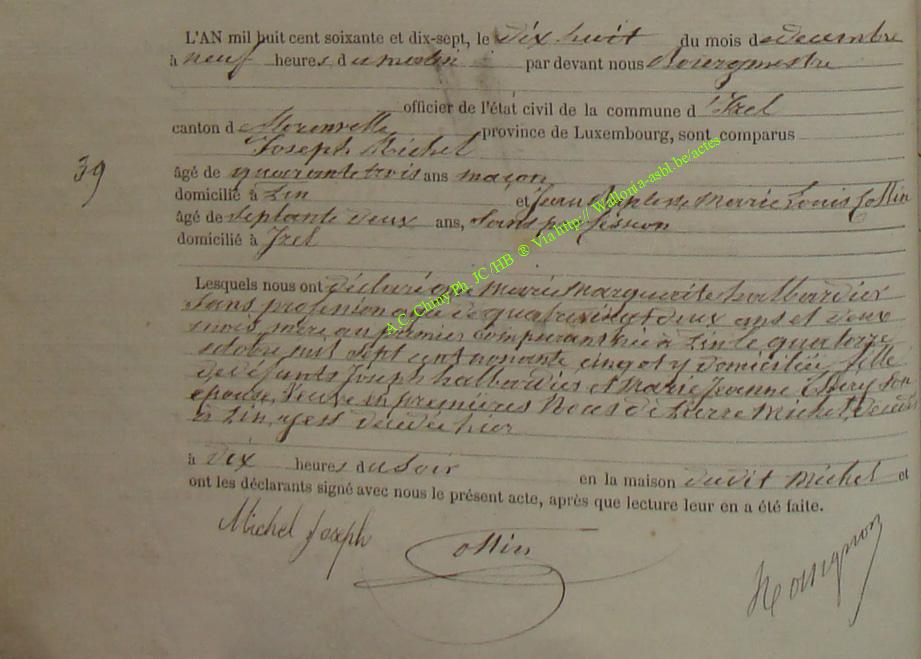 L'AN mil huit cent soixante et dix-sept, le dix huit du mois de decembre
à neuf heures du matin par devant nous Bourgmestre
officier de l'état civil de la commune d'Izel
canton de Florenville province de Luxembourg, sont comparus
Joseph Michel
39
âgé de quarante trois ans maçon
domicilié à et Jean Baptiste Marie Louis Collin
âgé de septante deux ans, sans profession
domicilié à Izel
Lesquels nous ont déclaré que Marie Marguerite halbardier
sans profession agée de quatrevingt deux ans et deux
mois, mère au premier comparant née à le quatorze
octobre mil sept cent nonante cinq et y domiciliée, fille
de défunts Joseph halbardier et Marie Jeanne son
épouse, veuve en premières Noces de Pierre Michel, décédé
à y est décédée hier
à dix heures du soir en la maison dudit Michel et
ont les déclarants signé avec nous le présent acte, après que lecture leur en a été faite.
Michel Joseph Collin
A.C. Chiny Ph. JC /HB ® Via http:// Wallonia-asbl.be/actes